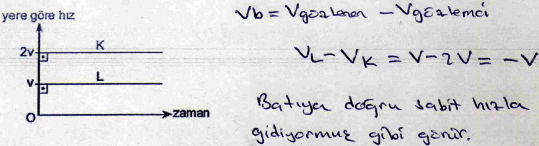 yere göre hız
2v
K
v
L
O
zaman
Vb = Vgözlenen - Vgözlemci
VL - VK = V - 2V = -V
Batıya doğru sabit hızla
gidiyormuş gibi görür.